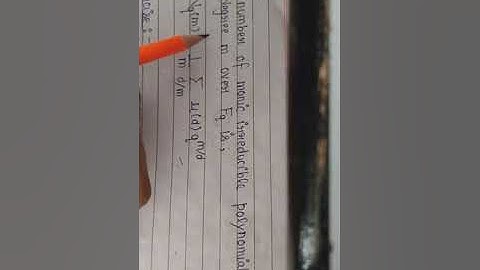 number of monic irreducible polynomial
degree m over Fq is,
(m) 1/m Σ d/m μ(d) q^m/d =